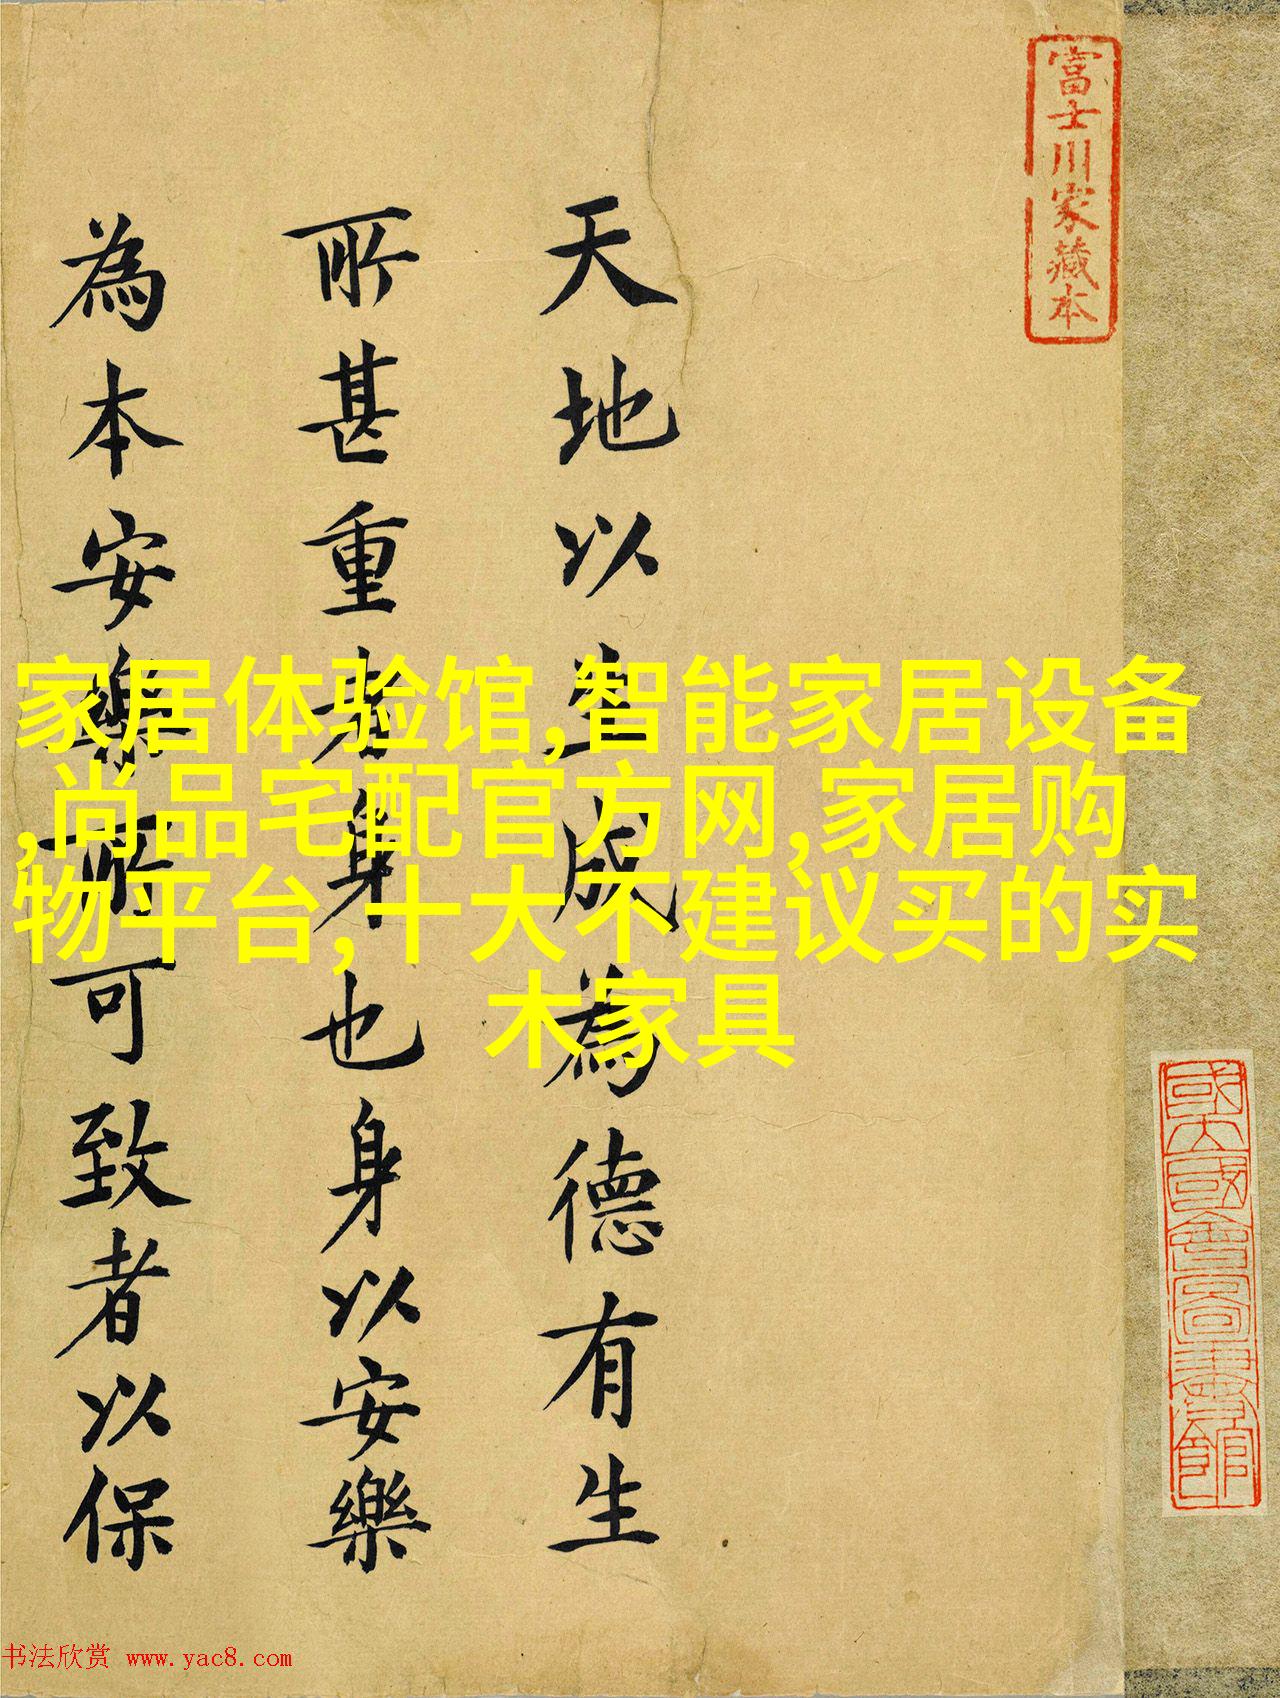 富士川家藏本
天地以生成為德有生
所甚重者身也身以安樂
為本安樂所可致者以保
家居体验馆,智能家居设备
,尚品宅配官方网,家居购
物平台,十大不建议买的实
木家具
书法欣赏 www.yac8.com